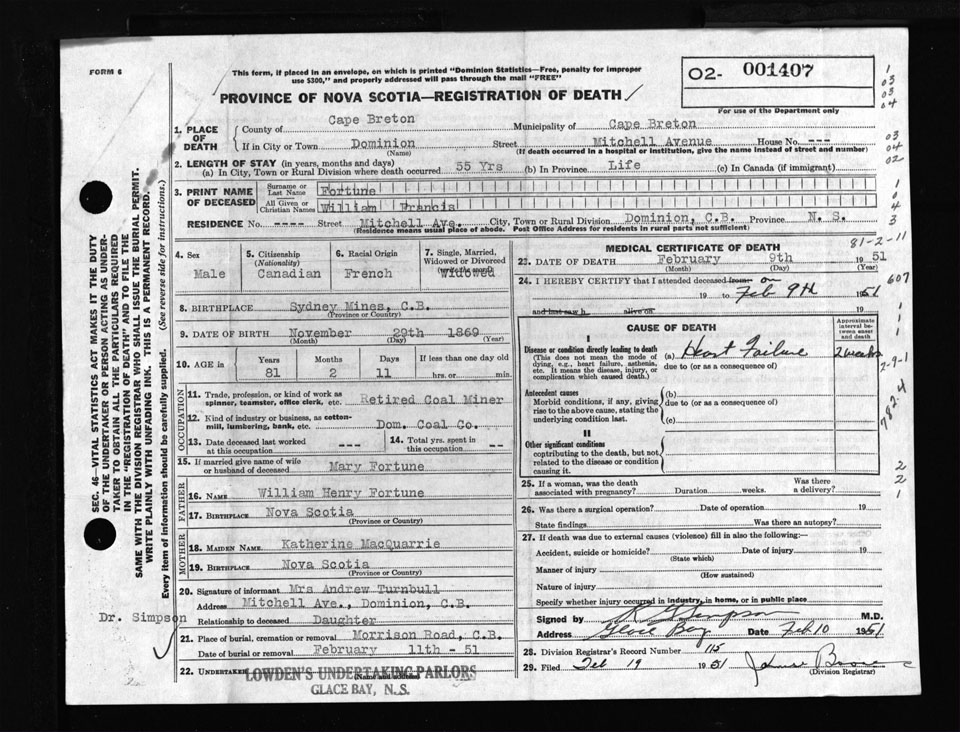 FORM 6
This form, if placed in an envelope, on which is printed "Dominion Statistics—Free, penalty for improper
use $300," and properly addressed will pass through the mail "FREE"
PROVINCE OF NOVA SCOTIA—REGISTRATION OF DEATH
O2- 001407
For use of the Department only
1. PLACE OF DEATH
County of Cape Breton Municipality of Cape Breton
If in City or Town Dominion Street Mitchell Avenue House No. ---
(Name) (If death occurred in a hospital or institution, give the name instead of street and number)
2. LENGTH OF STAY (in years, months and days)
(a) In City, Town or Rural Division where death occurred 55 Yrs (b) In Province Life (c) In Canada (if immigrant)
3. PRINT NAME OF DECEASED
Surname or Last Name Fortune
All Given or Christian Names William Francis
RESIDENCE No. ---- Street Mitchell Ave. City, Town or Rural Division Dominion, C.B. Province N. S.
(Residence means usual place of abode. Post Office Address for residents in rural parts not sufficient)
4. Sex Male
5. Citizenship (Nationality) Canadian
6. Racial Origin French
7. Single, Married, Widowed or Divorced Widowed
8. BIRTHPLACE Sydney Mines, C.B.
(Province or Country)
9. DATE OF BIRTH November 29th 1869
(Month) (Day) (Year)
10. AGE in Years Months Days If less than one day old
81 2 11 hrs. or min.
OCCUPATION
11. Trade, profession, or kind of work as spinner, teamster, office clerk, etc. Retired Coal Miner
12. Kind of industry or business, as cotton-mill, lumbering, bank, etc. Dom. Coal Co.
13. Date deceased last worked at this occupation ---
14. Total yrs. spent in this occupation --
15. If married give name of wife or husband of deceased Mary Fortune
FATHER
16. NAME William Henry Fortune
17. BIRTHPLACE Nova Scotia
(Province or Country)
MOTHER
18. MAIDEN NAME Katherine MacQuarrie
19. BIRTHPLACE Nova Scotia
(Province or Country)
20. Signature of informant Mrs Andrew Turnbull
Address Mitchell Ave., Dominion, C.B.
Relationship to deceased Daughter
21. Place of burial, cremation or removal Morrison Road, C.B.
Date of burial or removal February 11th - 51
22. Undertaker LOWDEN'S UNDERTAKING PARLORS
(Name and address)
GLACE BAY, N.S.
MEDICAL CERTIFICATE OF DEATH
23. DATE OF DEATH February 9th 1951
(Month) (Day) (Year)
24. I HEREBY CERTIFY that I attended deceased from on
19 to Feb 9th 1951
and last saw h alive on 19
CAUSE OF DEATH
Approximate interval between onset and death
I
Disease or condition directly leading to death (a) Heart Failure 2 weeks
(This does not mean the mode of dying, e.g., heart failure, asthenia, etc. It means the disease, injury, or complication which caused death.)
due to (or as a consequence of)
Antecedent causes (b)
Morbid conditions, if any, giving rise to the above cause, stating the underlying condition last.
due to (or as a consequence of)
(c)
II
Other significant conditions
contributing to the death, but not related to the disease or condition causing it.
25. If a woman, was the death associated with pregnancy? Duration weeks. Was there a delivery?
26. Was there a surgical operation? Date of operation 19
State findings Was there an autopsy?
27. If death was due to external causes (violence) fill in also the following:—
Accident, suicide or homicide? Date of injury 19
(State which)
Manner of injury
(How sustained)
Nature of injury
Specify whether injury occurred in industry, in home, or in public place
Signed by Simpson M.D.
Address Glace Bay Date Feb 10 1951
28. Division Registrar's Record Number 115
29. Filed Feb 19 1951
(Division Registrar)
SEC. 46—VITAL STATISTICS ACT MAKES IT THE DUTY
OF THE UNDERTAKER OR PERSON ACTING AS UNDER-
TAKER TO OBTAIN ALL THE PARTICULARS REQUIRED
IN THE "REGISTRATION OF DEATH" AND TO FILE THE
SAME WITH THE DIVISION REGISTRAR WHO SHALL ISSUE THE BURIAL PERMIT.
WRITE PLAINLY WITH UNFADING INK. THIS IS A PERMANENT RECORD.
Every item of information should be carefully supplied. (See reverse side for instructions.)
Dr. Simpson
1
03
03
04
03
04
02
1
0
4
3
81-2-11
607
1
1
1
2-9-1
782.4
2
2
1